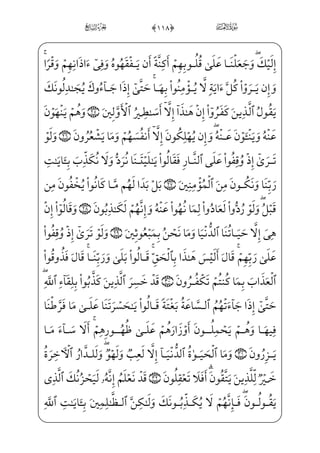 الجزء السابع ﴿١١٨﴾ سورة الأنعام
إِلَيْكَ ۖ وَجَعَلْنَا عَلَىٰ قُلُوبِهِمْ أَكِنَّةً أَن يَفْقَهُوهُ وَفِىٓ ءَاذَانِهِمْ وَقْرًا ۚ
وَإِن يَرَوْا۟ كُلَّ ءَايَةٍ لَّا يُؤْمِنُوا۟ بِهَا ۚ حَتَّىٰٓ إِذَا جَآءُوكَ يُجَٰدِلُونَكَ
يَقُولُ ٱلَّذِينَ كَفَرُوٓا۟ إِنْ هَٰذَآ إِلَّآ أَسَٰطِيرُ ٱلْأَوَّلِينَ ۝ وَهُمْ يَنْهَوْنَ
عَنْهُ وَيَنْـَٔوْنَ عَنْهُ ۖ وَإِن يُهْلِكُونَ إِلَّآ أَنفُسَهُمْ وَمَا يَشْعُرُونَ ۝ وَلَوْ
تَرَىٰٓ إِذْ وُقِفُوا۟ عَلَى ٱلنَّارِ فَقَالُوا۟ يَٰلَيْتَنَا نُرَدُّ وَلَا نُكَذِّبَ بِـَٔايَٰتِ
رَبِّنَا وَنَكُونَ مِنَ ٱلْمُؤْمِنِينَ ۝ بَلْ بَدَا لَهُم مَّا كَانُوا۟ يُخْفُونَ مِن
قَبْلُ ۖ وَلَوْ رُدُّوا۟ لَعَادُوا۟ لِمَا نُهُوا۟ عَنْهُ وَإِنَّهُمْ لَكَٰذِبُونَ ۝ وَقَالُوٓا۟ إِنْ
هِىَ إِلَّا حَيَاتُنَا ٱلدُّنْيَا وَمَا نَحْنُ بِمَبْعُوثِينَ ۝ وَلَوْ تَرَىٰٓ إِذْ وُقِفُوا۟
عَلَىٰ رَبِّهِمْ ۚ قَالَ أَلَيْسَ هَٰذَا بِٱلْحَقِّ ۚ قَالُوا۟ بَلَىٰ وَرَبِّنَا ۚ قَالَ فَذُوقُوا۟
ٱلْعَذَابَ بِمَا كُنتُمْ تَكْفُرُونَ ۝ قَدْ خَسِرَ ٱلَّذِينَ كَذَّبُوا۟ بِلِقَآءِ ٱللَّهِ ۖ
حَتَّىٰٓ إِذَا جَآءَتْهُمُ ٱلسَّاعَةُ بَغْتَةً قَالُوا۟ يَٰحَسْرَتَنَا عَلَىٰ مَا فَرَّطْنَا
فِيهَا وَهُمْ يَحْمِلُونَ أَوْزَارَهُمْ عَلَىٰ ظُهُورِهِمْ ۚ أَلَا سَآءَ مَا
يَزِرُونَ ۝ وَمَا ٱلْحَيَوٰةُ ٱلدُّنْيَآ إِلَّا لَعِبٌ وَلَهْوٌ ۖ وَلَلدَّارُ ٱلْـَٔاخِرَةُ
خَيْرٌ لِّلَّذِينَ يَتَّقُونَ ۗ أَفَلَا تَعْقِلُونَ ۝ قَدْ نَعْلَمُ إِنَّهُۥ لَيَحْزُنُكَ ٱلَّذِى
يَقُولُونَ ۖ فَإِنَّهُمْ لَا يُكَذِّبُونَكَ وَلَٰكِنَّ ٱلظَّٰلِمِينَ بِـَٔايَٰتِ ٱللَّهِ